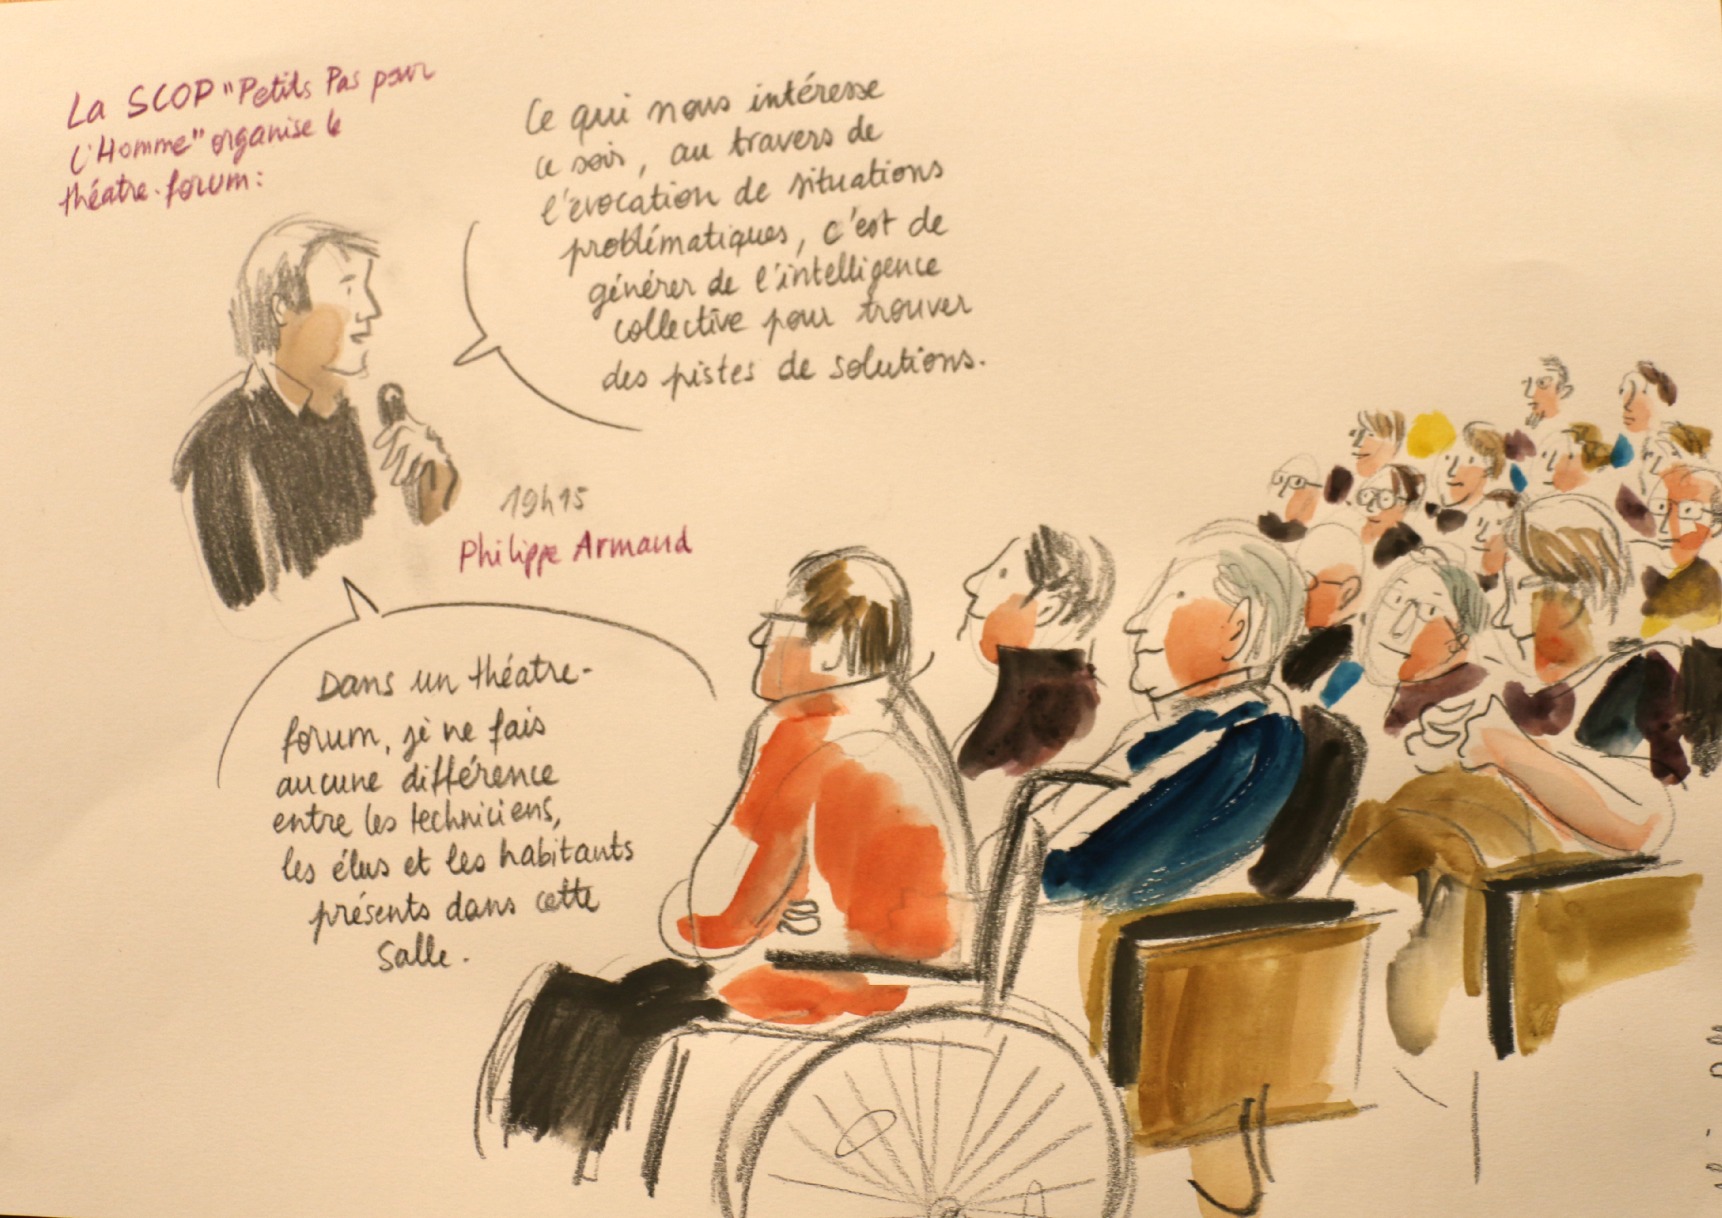 La SCOP "Petits Pas pour
l'Homme" organise le
théatre-forum:
Ce qui nous intéresse
ce soir, au travers de
l'évocation de situations
problématiques, c'est de
générer de l'intelligence
collective pour trouver
des pistes de solutions.
19h15
Philippe Armand
Dans un théatre-
forum, je ne fais
aucune différence
entre les techniciens,
les élus et les habitants
présents dans cette
salle.